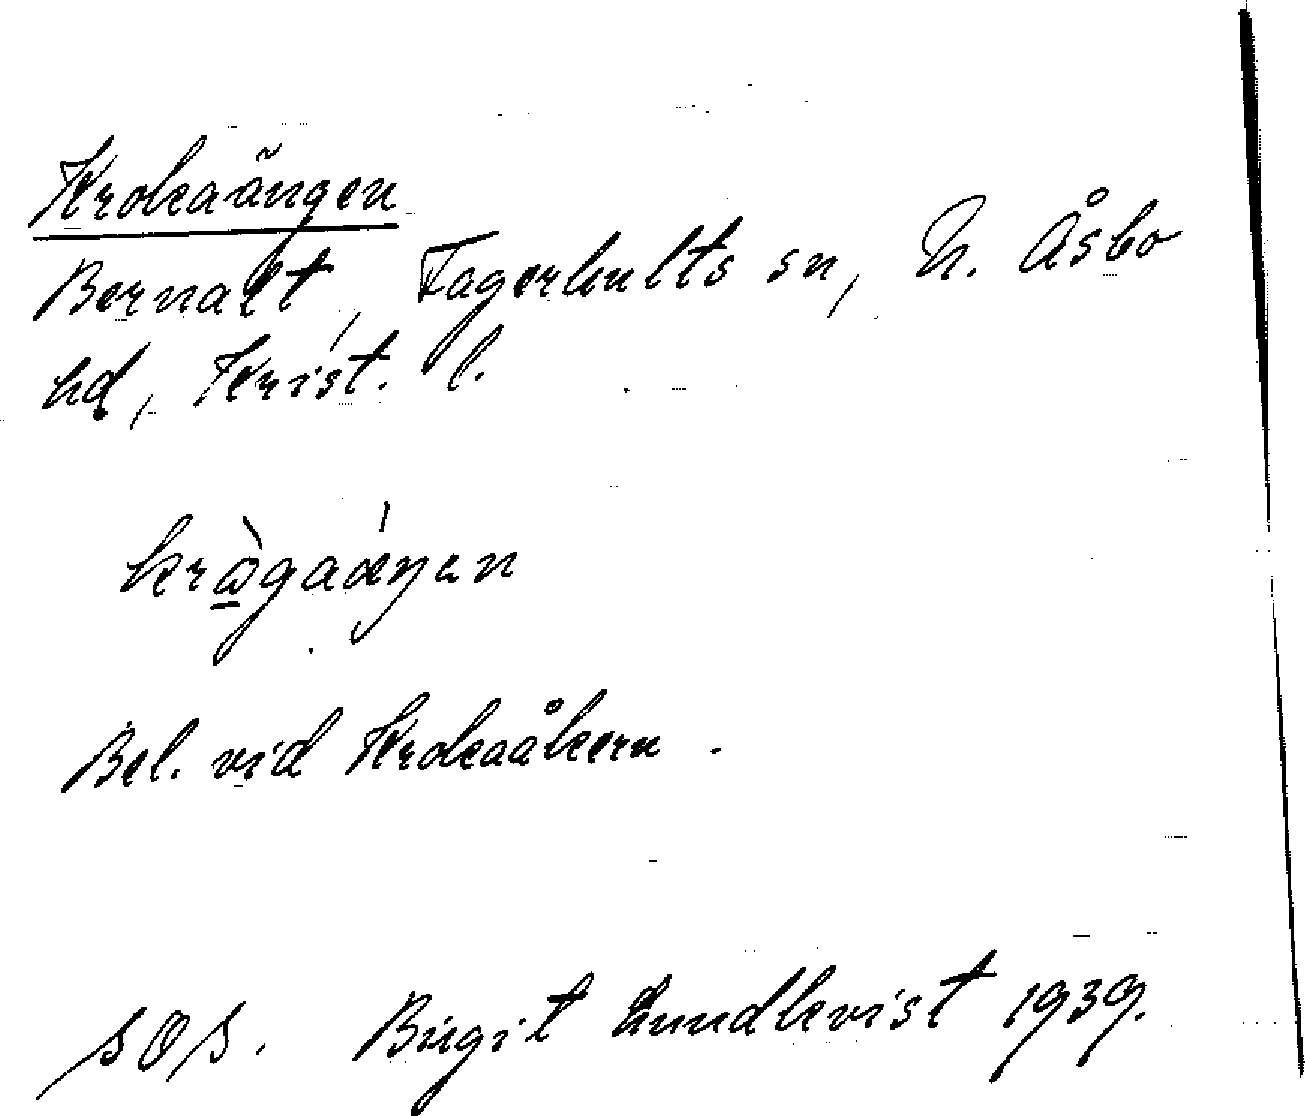 Krokaängen
Bernalt, Fagerhults sn, N. Åsbo
hd, Krist. l.
krògaáŋen
Bel. vid Krokaåkern.
SOS. Birgit Lundkvist 1939.